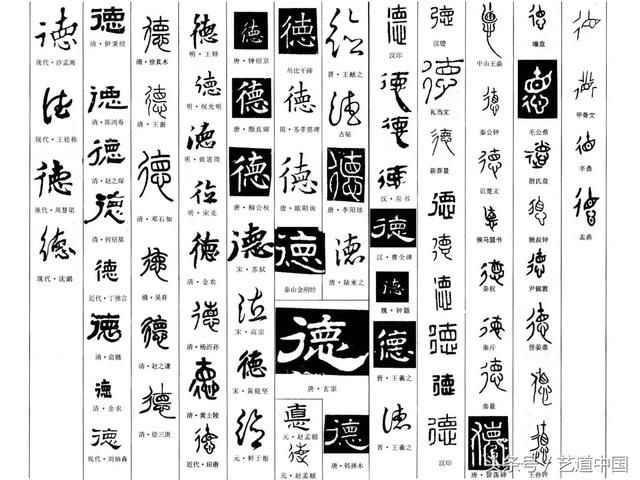 德
现代·沙孟海
德
现代·王廷栋
德
现代·周慧珺
德
现代·沈鹏
德
清·伊秉绶
德
清·陈鸿寿
德
清·赵之琛
德
清·何绍基
德
近代·丁佛言
德
清·俞樾
德
清·金农
德
现代·刘炳森
德
清·徐真木
德
清·王澍
德
清·邓石如
德
清·吴育
德
清·赵之谦
德
清·徐三庚
德
明·王铎
德
明·祝允明
德
明·宋克
德
清·金农
德
清·杨沂孙
德
清·黄士陵
德
近代·田潜
德
唐·钟绍京
德
唐·颜真卿
德
唐·柳公权
德
宋·苏轼
德
宋·高宗
德
宋·黄庭坚
德
元·鲜于枢
德
吊比干碑
德
隋·苏孝慈碑
德
唐·欧阳询
德
泰山金刚经
德
唐·玄宗
德
元·赵孟頫
德
元·赵孟頫
德
晋·王献之
德
古帖
德
唐·李阳冰
德
唐·陆柬之
德
唐·韩择木
德
汉印
德
德
德
汉·帛书
德
汉·曹全碑
德
魏·钟繇
德
晋·王羲之
德
晋·王羲之
德
汉镫
德
瓦当文
德
新莽量
德
德
德
德
德
汉印
德
中山王鼎
德
秦公钟
德
诅楚文
德
侯马盟书
德
秦权
德
秦斤
德
秦量
德
唐·碧落碑
德
墙盘
德
毛公鼎
德
散氏盘
德
虢叔钟
德
尹傲敦
德
晋姜鼎
德
王孙钟
德
德
甲骨文
德
辛鼎
德
盂鼎
头条号／艺道中国